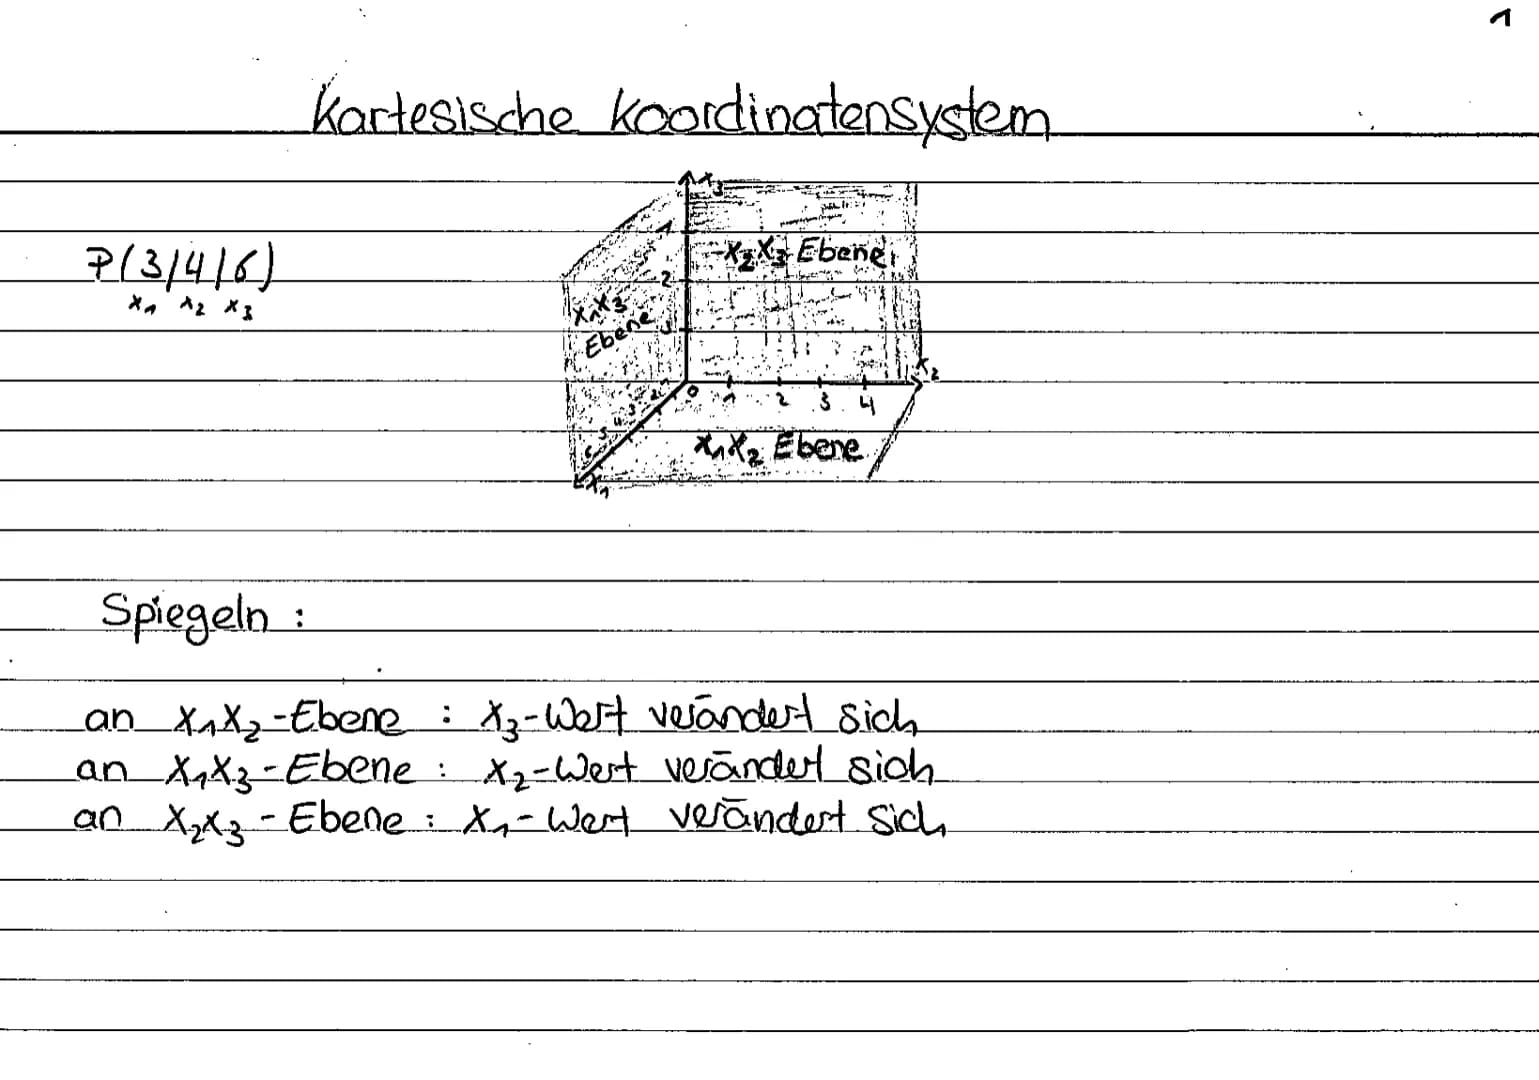 1
Kartesische Koordinatensystem
x₃
P(3/4/6)
x₁ x₂ x₃
x₂x₃ Ebene
x₁x₃
Ebene
1
2
3
x₂
0 1 2 3 4
1 2 3 4 5 6
x₁x₂ Ebene
x₁
Spiegeln :
an x₁x₂-Ebene : x₃-Wert verändert sich
an x₁x₃-Ebene : x₂-Wert verändert sich
an x₂x₃-Ebene : x₁-Wert verändert sich